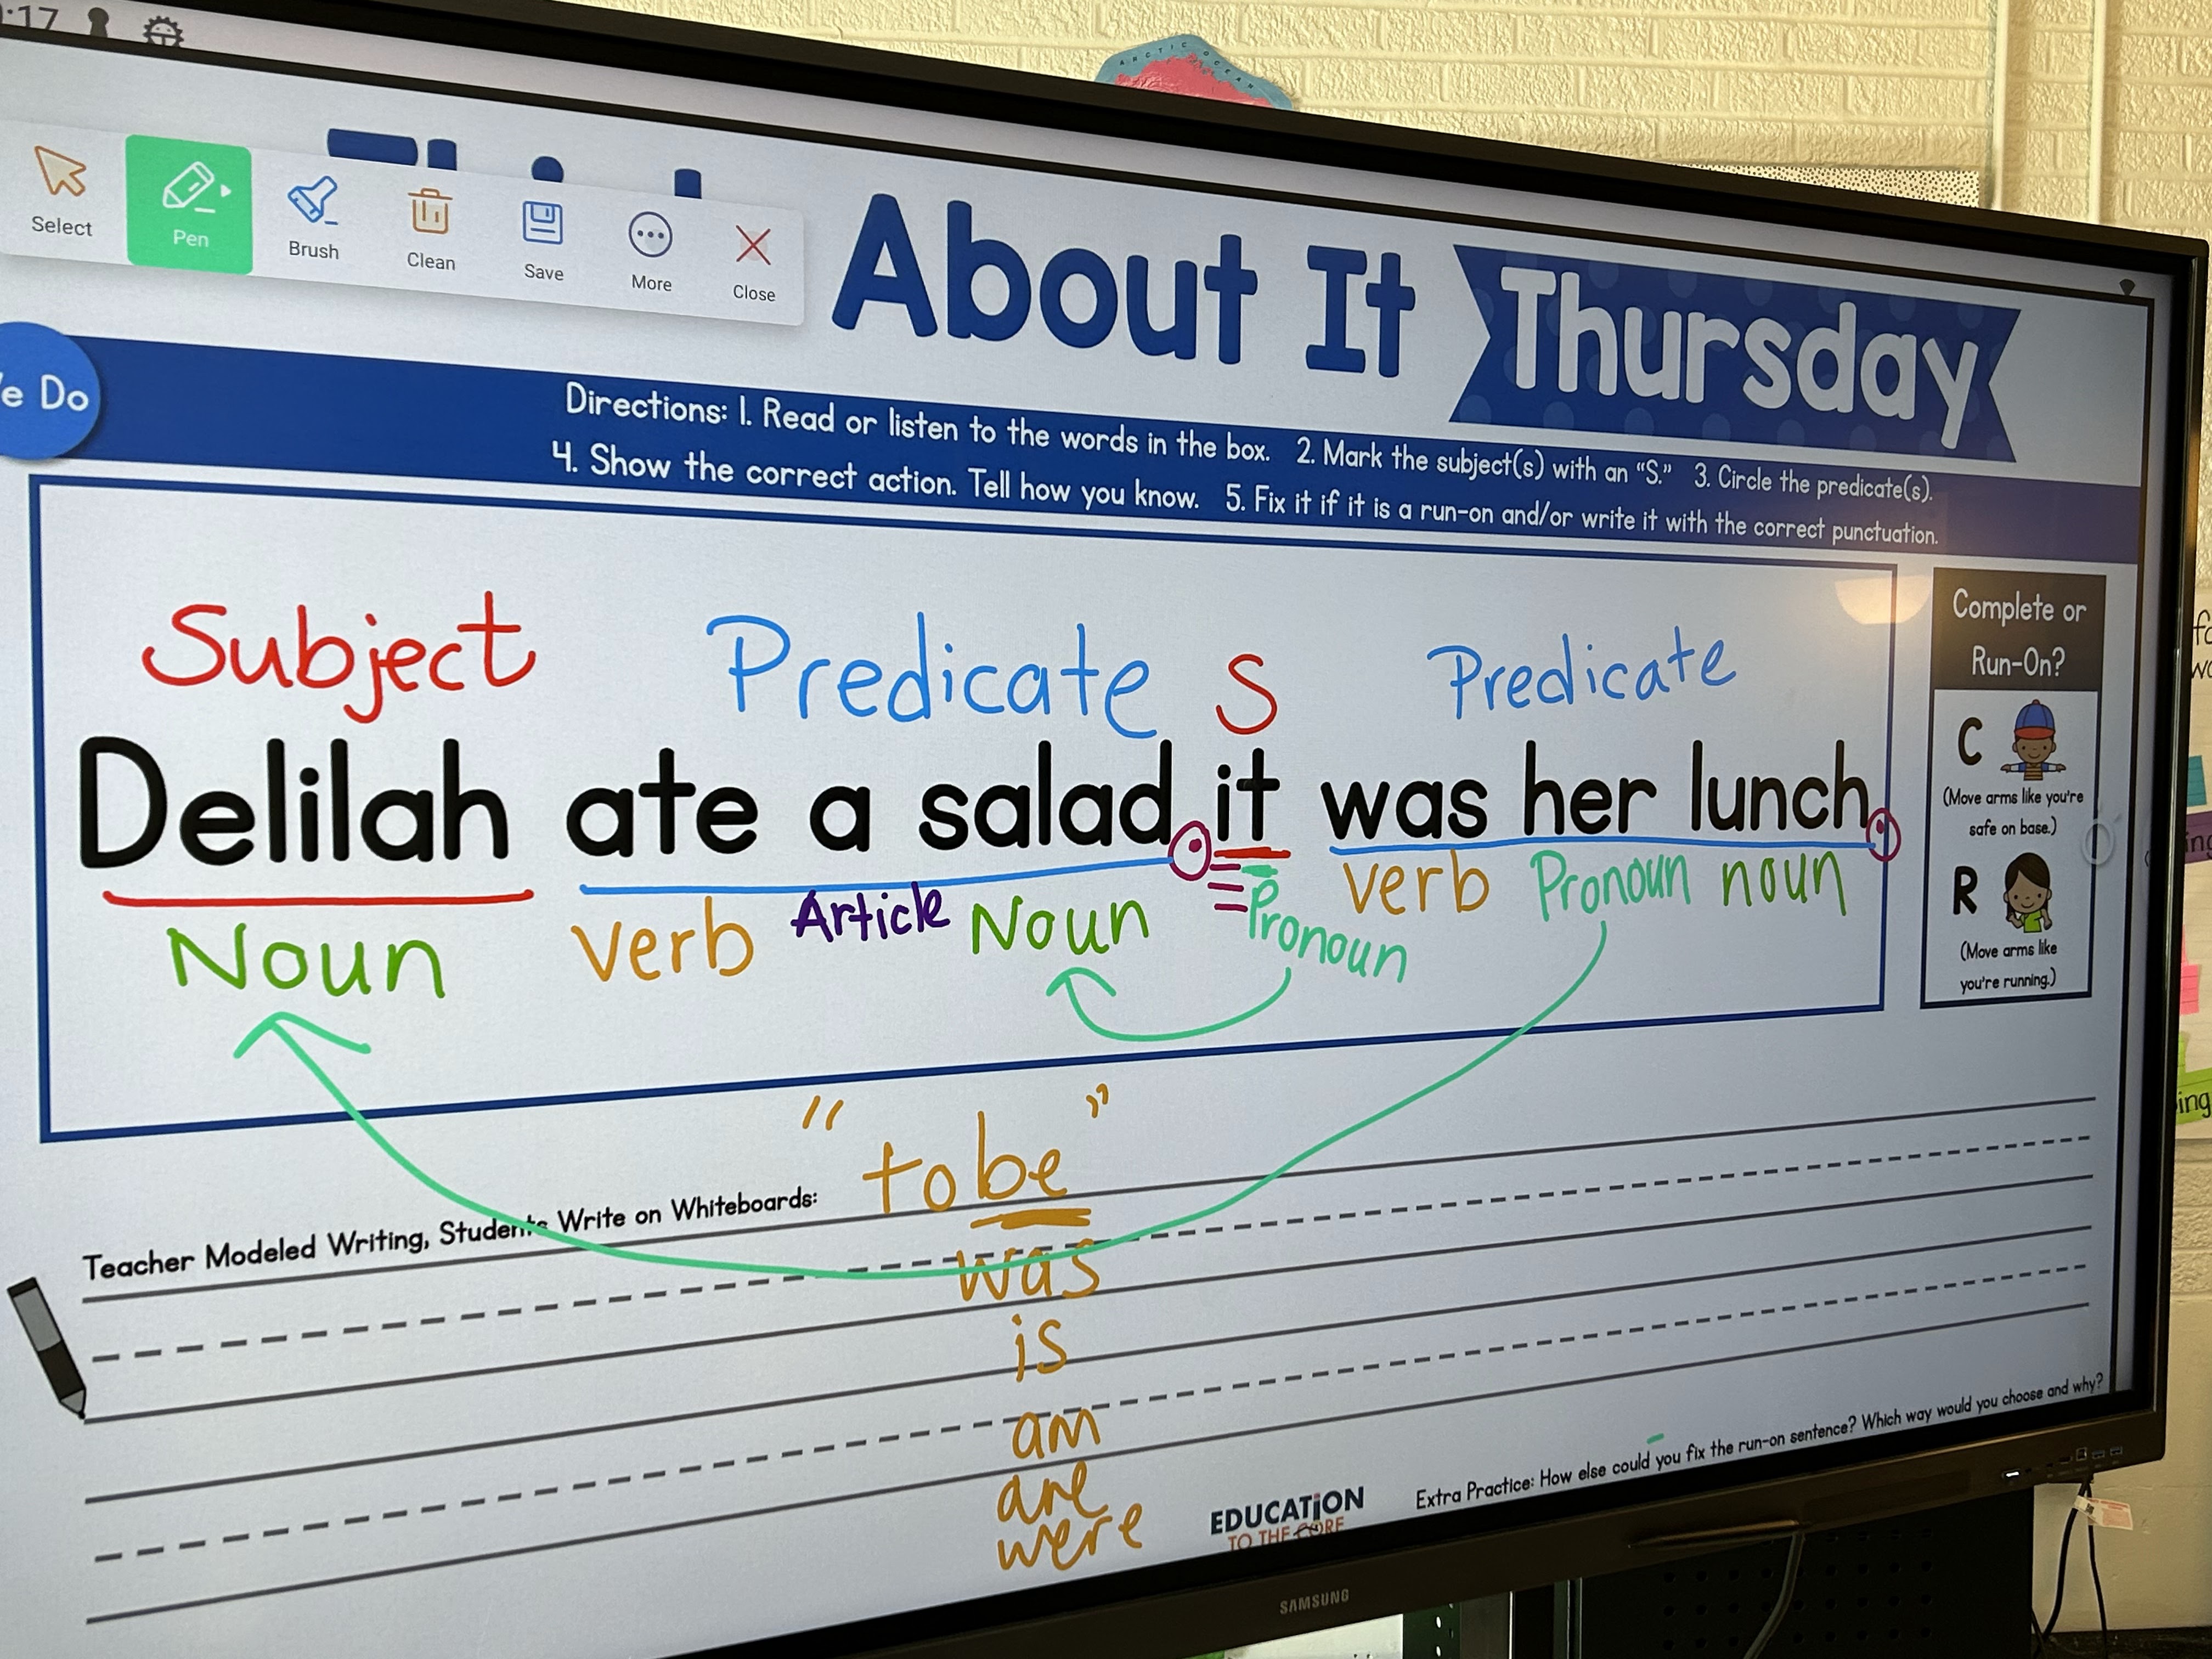 :17
ARCTIC OCEAN
Select Pen Brush Clean Save More Close
About It Thursday
e Do
Directions: 1. Read or listen to the words in the box. 2. Mark the subject(s) with an “S.” 3. Circle the predicate(s).
4. Show the correct action. Tell how you know. 5. Fix it if it is a run-on and/or write it with the correct punctuation.
Subject Predicate S Predicate
Delilah ate a salad. it was her lunch.
Noun verb Article Noun Pronoun verb Pronoun noun
Complete or
Run-On?
C
(Move arms like you're
safe on base.)
R
(Move arms like
you're running.)
"to be"
Teacher Modeled Writing, Students Write on Whiteboards:
was
is
am
are
were
EDUCATION
TO THE CORE
Extra Practice: How else could you fix the run-on sentence? Which way would you choose and why?
SAMSUNG
ing